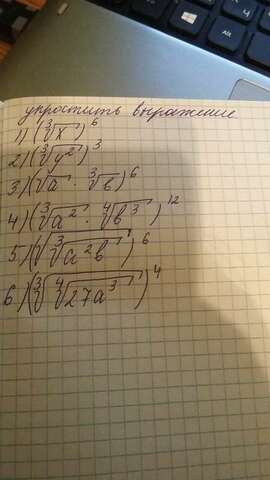 упростить выражение
1) (∛x)⁶
2) (∛y²)³
3) (√a · ∛b)⁶
4) (∛a² · ∜b³)¹²
5) (√∛a²b)⁶
6) (∛∜27a³)⁴